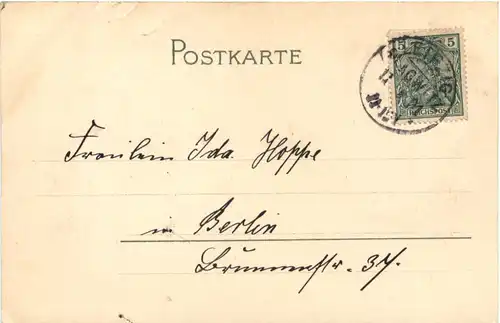 POSTKARTE
5 5
REICHSPOST
Fräulein Ida Hoppe
in Berlin
Brunnenstr. 37.